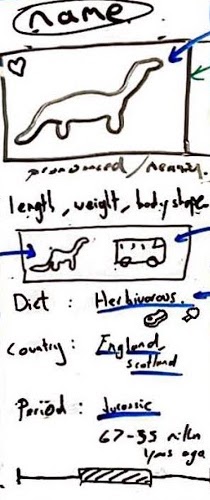 name
pronounced / meaning
length, weight, body shape
Diet : Herbivorous.
Country: England,
Scotland
Period : Jurassic
67-35 milln
yrs ago